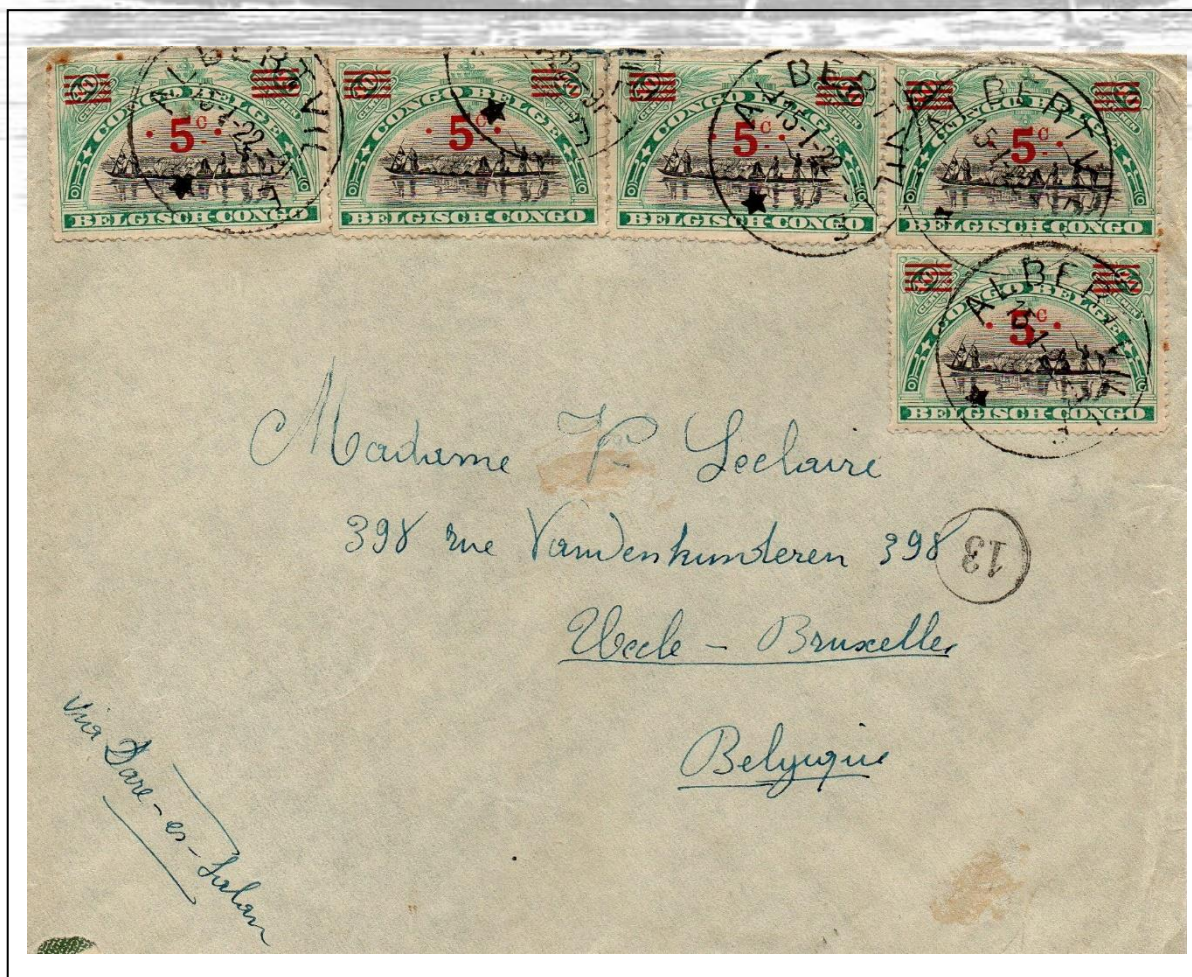 CONGO BELGE
5c
BELGISCH-CONGO
CONGO BELGE
5c
BELGISCH-CONGO
CONGO BELGE
5c
BELGISCH-CONGO
CONGO BELGE
5c
BELGISCH-CONGO
ALBERTVILLE
CONGO BELGE
5c
BELGISCH-CONGO
Madame Leclaire
398 rue Vandenkunderen 398
13
Uccle - Bruxelles
Belgique
via Dare-es-Salam